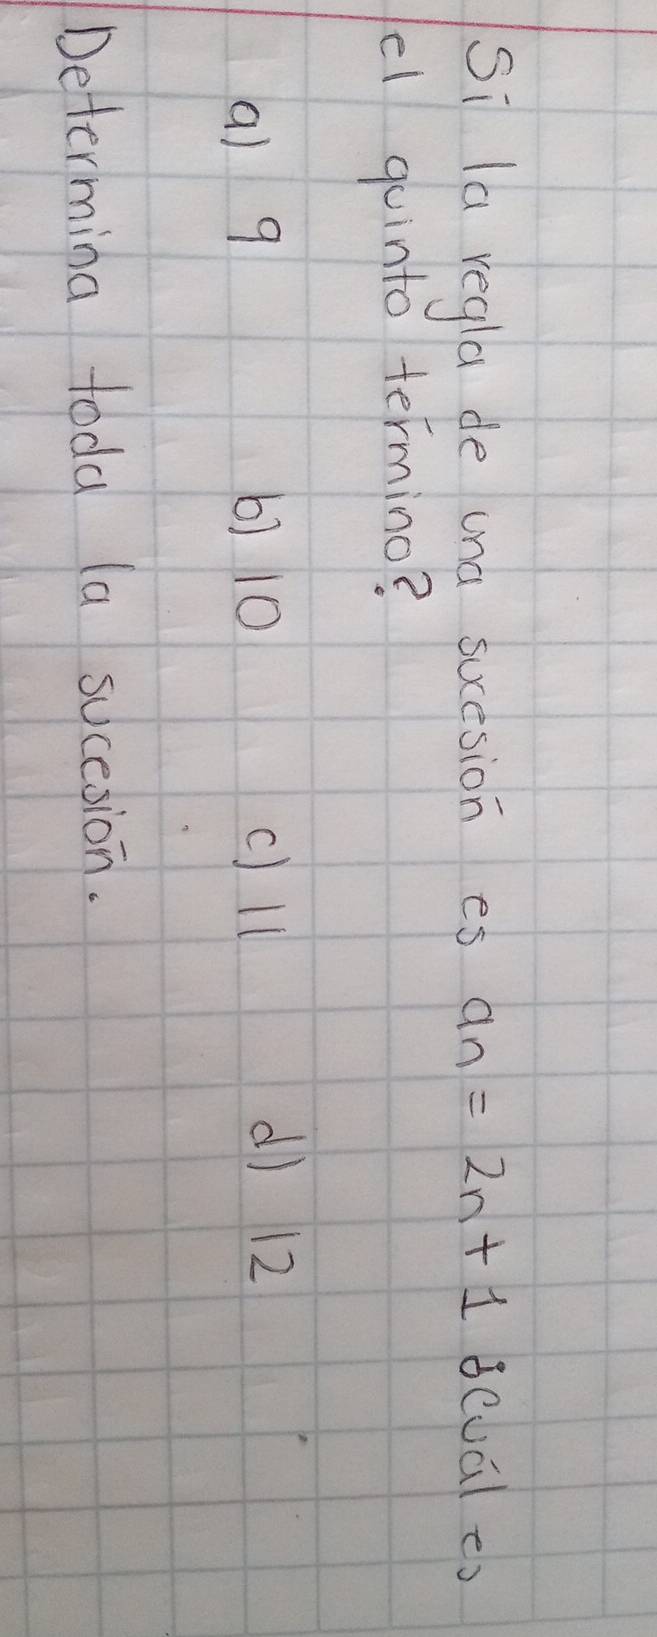 Si la regla de una sucesión es an = 2n + 1 ¿cuál es
el quinto término?
a) 9 b) 10 c) 11 d) 12
Determina toda la sucesión.